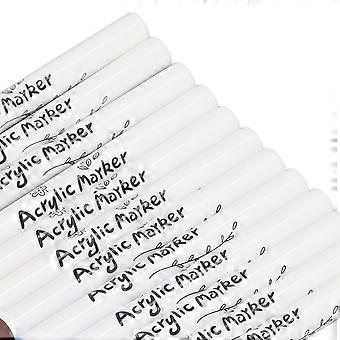 Acrylic Marker
Acrylic Marker
Acrylic Marker
Acrylic Marker
Acrylic Marker
Acrylic Marker
Acrylic Marker
Acrylic Marker
Acrylic Marker
Acrylic Marker